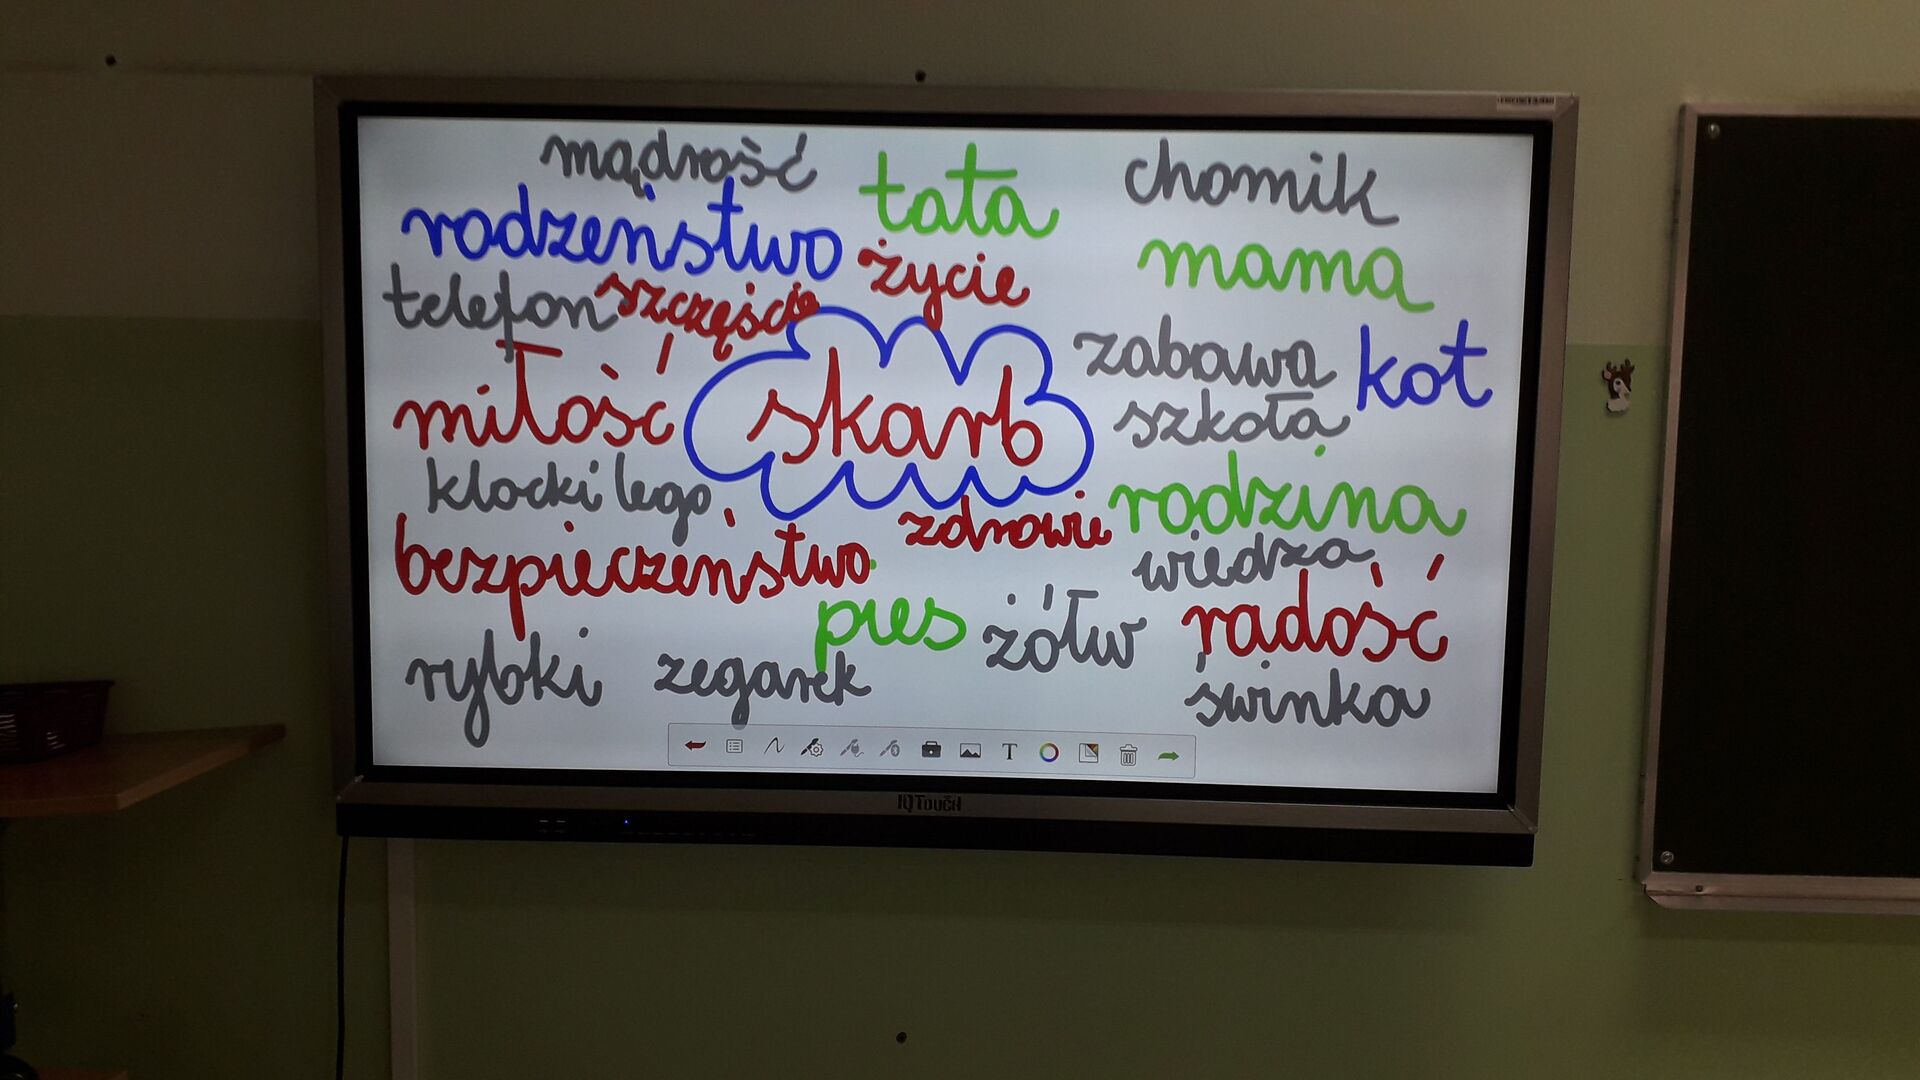 mądrość
tata
chomik
rodzeństwo
życie
mama
telefon
szczęście
zabawa
kot
miłość
skarb
szkoła
klocki lego
zdrowie
rodzina
bezpieczeństwo
wiedza
pies
żółw
radość
rybki
zegarek
świnka
T
IQTouch